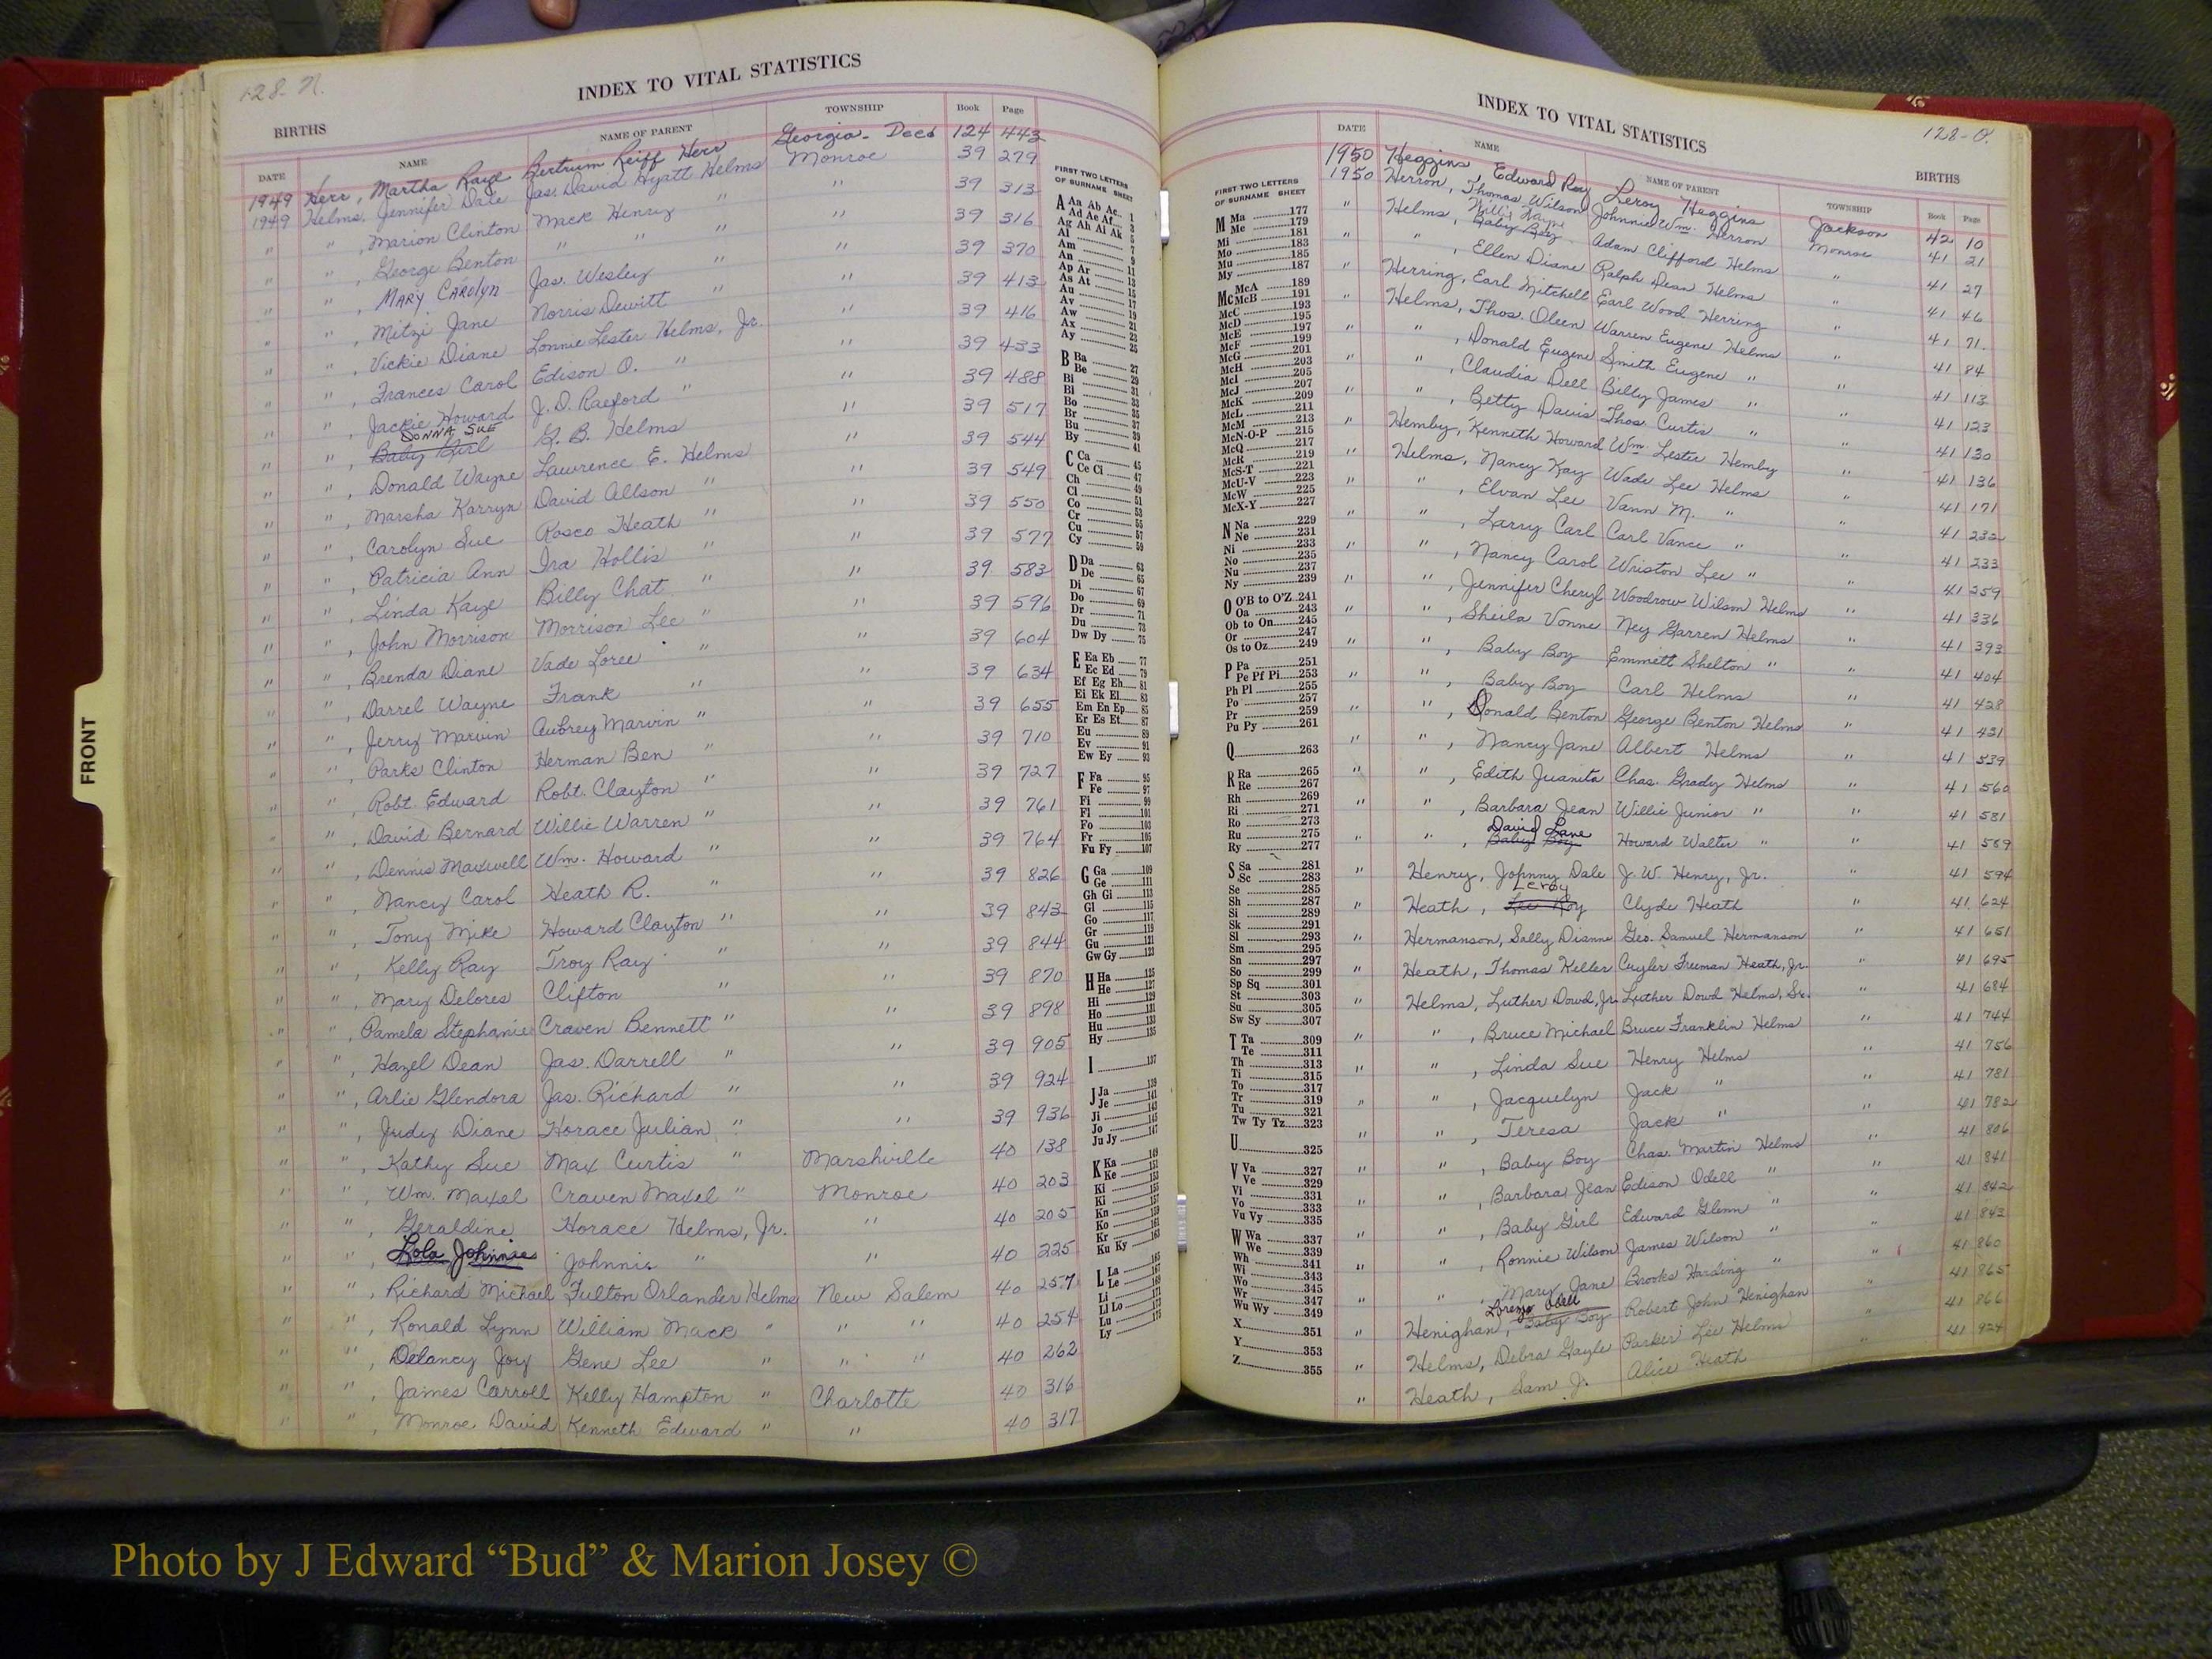 128-N.
INDEX TO VITAL STATISTICS
BIRTHS
DATE NAME NAME OF PARENT TOWNSHIP Book Page
1949 Herr, Martha Raye Bertrum Reiff Herr Georgia - Decd 124 443
1949 Helms, Jennifer Dale Jas. David Hyatt Helms Monroe 39 279
" " , Marion Clinton Mack Henry " " 39 313
" " , George Benton " " " " 39 316
" " , MARY CAROLYN Jas. Wesley " " 39 370
" " , Mitzi Jane Norris Dewitt " " 39 413
" " , Vickie Diane Lonnie Lester Helms, Jr. " 39 416
" " , Frances Carol Edison O. " " 39 433
" " , Jackie Howard J. D. Raeford " " 39 488
DONNA SUE
" " , Baby Girl G. B. Helms " 39 517
" " , Donald Wayne Lawrence E. Helms " 39 544
" " , Marsha Karryn David Allson " " 39 549
" " , Carolyn Sue Rosco Heath " " 39 550
" " , Patricia Ann Ira Hollis " " 39 577
" " , Linda Kaye Billy Chat " " 39 583
" " , John Morrison Morrison Lee " " 39 596
" " , Brenda Diane Vade Loree " " 39 604
" " , Darrel Wayne Frank " " 39 634
" " , Jerry Marvin Aubrey Marvin " " 39 655
" " , Parks Clinton Herman Ben " " 39 710
" " , Robt. Edward Robt. Clayton " " 39 727
" " , David Bernard Willie Warren " " 39 761
" " , Dennis Maxwell Wm. Howard " " 39 764
" " , Nancy Carol Heath R. " " 39 826
" " , Tony Mike Howard Clayton " " 39 843
" " , Kelly Ray Troy Ray " " 39 844
" " , Mary Delores Clifton " " 39 870
" " , Pamela Stephanie Craven Bennett " " 39 898
" " , Hazel Dean Jas. Darrell " " 39 905
" " , Arlie Glendora Jas. Richard " " 39 924
" " , Judy Diane Horace Julian " " 39 936
" " , Kathy Sue Max Curtis " Marshville 40 138
" " , Wm. Maxel Craven Maxel " Monroe 40 203
" " , Geraldine Horace Helms, Jr. " 40 205
" " , Lola Johnnie Johnnie " " 40 225
" " , Richard Michael Fulton Orlander Helms New Salem 40 257
" " , Ronald Lynn William Mack " " " 40 254
" " , Delancy Joy Gene Lee " " " 40 262
" " , James Carroll Kelly Hampton " Charlotte 40 316
" " , Monroe David Kenneth Edward " " 40 317
FRONT
FIRST TWO LETTERS
OF SURNAME SHEET
A Aa Ab Ac 1
Ad Ae Af 3
Ag Ah Ai Ak 5
Al 7
Am 9
An 11
Ap Ar 13
As At 15
Au 17
Av 19
Aw 21
Ax 23
Ay 25
B Ba 27
Be 29
Bi 31
Bl 33
Bo 35
Br 37
Bu 39
By 41
C Ca 45
Ce Ci 47
Ch 49
Cl 51
Co 53
Cr 55
Cu 57
Cy 59
D Da 63
De 65
Di 67
Do 69
Dr 71
Du 73
Dw Dy 75
E Ea Eb 77
Ec Ed 79
Ef Eg Eh 81
Ei Ek El 83
Em En Ep 85
Er Es Et 87
Eu 89
Ev 91
Ew Ey 93
F Fa 95
Fe 97
Fi 99
Fl 101
Fo 103
Fr 105
Fu Fy 107
G Ga 109
Ge 111
Gh Gi 113
Gl 115
Go 117
Gr 119
Gu 121
Gw Gy 123
H Ha 125
He 127
Hi 129
Ho 131
Hu 133
Hy 135
I 137
J Ja 139
Je 141
Ji 143
Jo 145
Ju Jy 147
K Ka 149
Ke 151
Ki 153
Kl 155
Kn 157
Ko 159
Kr 161
Ku Ky 163
L La 165
Le 167
Li 169
Ll Lo 171
Lu 173
Ly 175
128-O.
INDEX TO VITAL STATISTICS
BIRTHS
DATE NAME NAME OF PARENT TOWNSHIP Book Page
1950 Heggins, Edward Ray Leroy Heggins Jackson 42 10
1950 Herron, Thomas Wilson Johnnie Wm. Herron Monroe 41 21
Willie Wayne
" Helms, Baby Boy Adam Clifford Helms " 41 27
" " , Ellen Diane Ralph Dean Helms " 41 46
" Herring, Earl Mitchell Earl Wood Herring " 41 71
" Helms, Thos. Oleen Warren Eugene Helms " 41 84
" " , Donald Eugene Smith Eugene " " 41 113
" " , Claudia Dell Billy James " " 41 123
" " , Betty Davis Thos. Curtis " " 41 130
" Hemby, Kenneth Howard Wm. Lester Hemby " 41 136
" Helms, Nancy Kay Wade Lee Helms " 41 171
" " , Elvan Lee Vann M. " " 41 232
" " , Larry Carl Carl Vance " " 41 233
" " , Nancy Carol Wriston Lee " " 41 259
" " , Jennifer Cheryl Woodrow Wilson Helms " 41 336
" " , Sheila Vonne Ney Garren Helms " 41 393
" " , Baby Boy Emmett Shelton " " 41 404
" " , Baby Boy Carl Helms " 41 428
" " , Donald Benton George Benton Helms " 41 431
" " , Nancy Jane Albert Helms " 41 539
" " , Edith Juanita Chas. Grady Helms " 41 560
" " , Barbara Jean Willie Junior " " 41 581
David Lane
" " , Baby Boy Howard Walter " " 41 589
" Henry, Johnny Dale J. W. Henry, Jr. " 41 594
Leroy
" Heath, Lee Roy Clyde Heath " 41 624
" Hermanson, Sally Dianne Geo. Samuel Hermanson " 41 651
" Heath, Thomas Keller Cuyler Freeman Heath, Jr. " 41 695
" Helms, Luther Dowd, Jr. Luther Dowd Helms, Sr. " 41 684
" " , Bruce Michael Bruce Franklin Helms " 41 744
" " , Linda Sue Henry Helms " 41 756
" " , Jacquelyn Jack " " 41 781
" " , Teresa Jack " " 41 782
" " , Baby Boy Chas. Martin Helms " 41 806
" " , Barbara Jean Edison Odell " " 41 841
" " , Baby Girl Edward Glenn " " 41 842
" " , Ronnie Wilson James Wilson " " 41 843
" " , Mary Jane Brooks Harding " " 41 860
Lorenzo Odell
" Henighan, Baby Boy Robert John Henighan " 41 865
" Helms, Debra Gayle Parker Lee Helms " 41 866
" Heath, Sam Jr. Alice Heath " 41 924
FIRST TWO LETTERS
OF SURNAME SHEET
M Ma 177
Me 179
Mi 181
Mo 183
Mu 185
My 187
Mc McA 189
McB 191
McC 193
McD 195
McE 197
McF 199
McG 201
McH 203
McI 205
McJ 207
McK 209
McL 211
McM 213
McN-O-P 215
McQ 217
McR 219
McS-T 221
McU-V 223
McW 225
McX-Y 227
N Na 229
Ne 231
Ni 233
No 235
Nu 237
Ny 239
O O'B to O'Z 241
Oa 243
Ob to On 245
Or 247
Os to Oz 249
P Pa 251
Pe Pf Pi 253
Ph Pl 255
Po 257
Pr 259
Pu Py 261
Q 263
R Ra 265
Re 267
Rh 269
Ri 271
Ro 273
Ru 275
Ry 277
S Sa 281
Sc 283
Se 285
Sh 287
Si 289
Sk 291
Sl 293
Sm 295
Sn 297
So 299
Sp Sq 301
St 303
Su 305
Sw Sy 307
T Ta 309
Te 311
Th 313
Ti 315
To 317
Tr 319
Tu 321
Tw Ty Tz 323
U 325
V Va 327
Ve 329
Vi 331
Vo 333
Vu Vy 335
W Wa 337
We 339
Wh 341
Wi 343
Wo 345
Wr 347
Wu Wy 349
X 351
Y 353
Z 355
Photo by J Edward “Bud” & Marion Josey ©